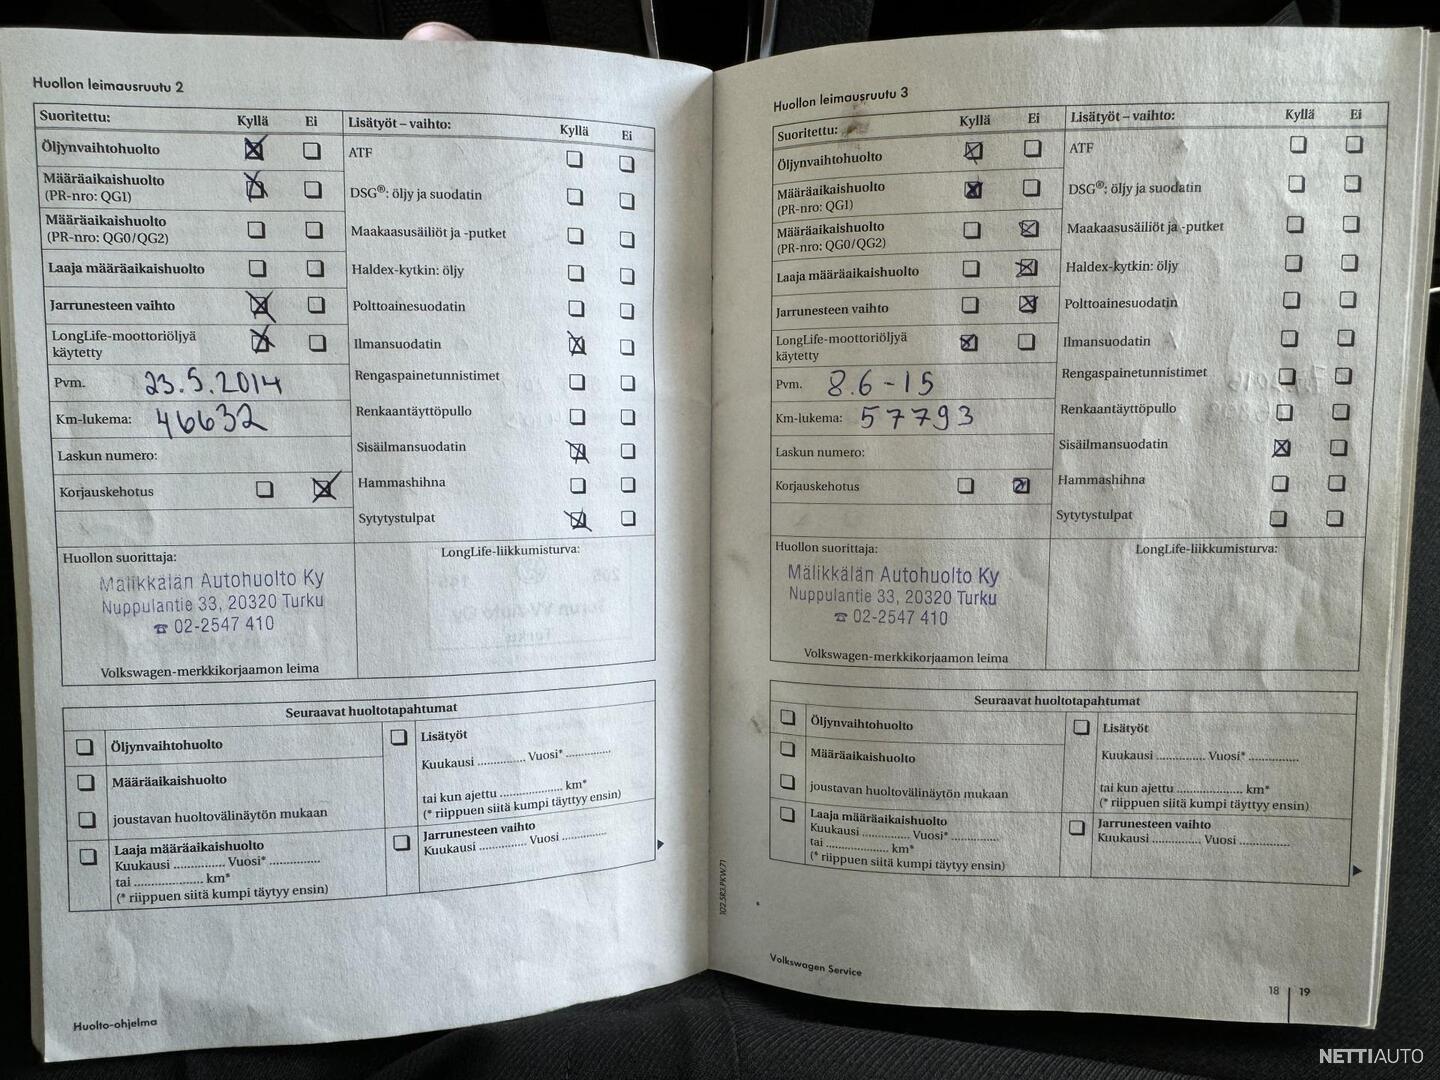 Huollon leimausruutu 2
Suoritettu: Kyllä Ei
Öljynvaihtohuolto
Määräaikaishuolto
(PR-nro: QG1)
Määräaikaishuolto
(PR-nro: QG0/QG2)
Laaja määräaikaishuolto
Jarrunesteen vaihto
LongLife-moottoriöljyä
käytetty
Pvm. 23.5.2014
Km-lukema: 46632
Laskun numero:
Korjauskehotus
Huollon suorittaja:
Mälikkälän Autohuolto Ky
Nuppulantie 33, 20320 Turku
☎ 02-2547 410
Volkswagen-merkkikorjaamon leima
Lisätyöt – vaihto: Kyllä Ei
ATF
DSG®: öljy ja suodatin
Maakaasusäiliöt ja -putket
Haldex-kytkin: öljy
Polttoainesuodatin
Ilmansuodatin
Rengaspainetunnistimet
Renkaantäyttöpullo
Sisäilmansuodatin
Hammashihna
Sytytystulpat
LongLife-liikkumisturva:
Seuraavat huoltotapahtumat
Öljynvaihtohuolto
Määräaikaishuolto
joustavan huoltovälinäytön mukaan
Laaja määräaikaishuolto
Kuukausi .............. Vuosi* ..............
tai .................... km*
(* riippuen siitä kumpi täytyy ensin)
Lisätyöt
Kuukausi .............. Vuosi* ..............
tai kun ajettu .................... km*
(* riippuen siitä kumpi täytyy ensin)
Jarrunesteen vaihto
Kuukausi .............. Vuosi ..............
Huolto-ohjelma
Huollon leimausruutu 3
Suoritettu: Kyllä Ei
Öljynvaihtohuolto
Määräaikaishuolto
(PR-nro: QG1)
Määräaikaishuolto
(PR-nro: QG0/QG2)
Laaja määräaikaishuolto
Jarrunesteen vaihto
LongLife-moottoriöljyä
käytetty
Pvm. 8.6-15
Km-lukema: 57793
Laskun numero:
Korjauskehotus
Huollon suorittaja:
Mälikkälän Autohuolto Ky
Nuppulantie 33, 20320 Turku
☎ 02-2547 410
Volkswagen-merkkikorjaamon leima
Lisätyöt – vaihto: Kyllä Ei
ATF
DSG®: öljy ja suodatin
Maakaasusäiliöt ja -putket
Haldex-kytkin: öljy
Polttoainesuodatin
Ilmansuodatin
Rengaspainetunnistimet
Renkaantäyttöpullo
Sisäilmansuodatin
Hammashihna
Sytytystulpat
LongLife-liikkumisturva:
Seuraavat huoltotapahtumat
Öljynvaihtohuolto
Määräaikaishuolto
joustavan huoltovälinäytön mukaan
Laaja määräaikaishuolto
Kuukausi .............. Vuosi* ..............
tai .................... km*
(* riippuen siitä kumpi täytyy ensin)
Lisätyöt
Kuukausi .............. Vuosi* ..............
tai kun ajettu .................... km*
(* riippuen siitä kumpi täytyy ensin)
Jarrunesteen vaihto
Kuukausi .............. Vuosi ..............
102.5R3.PKW.71
Volkswagen Service
18 | 19
NETTIAUTO